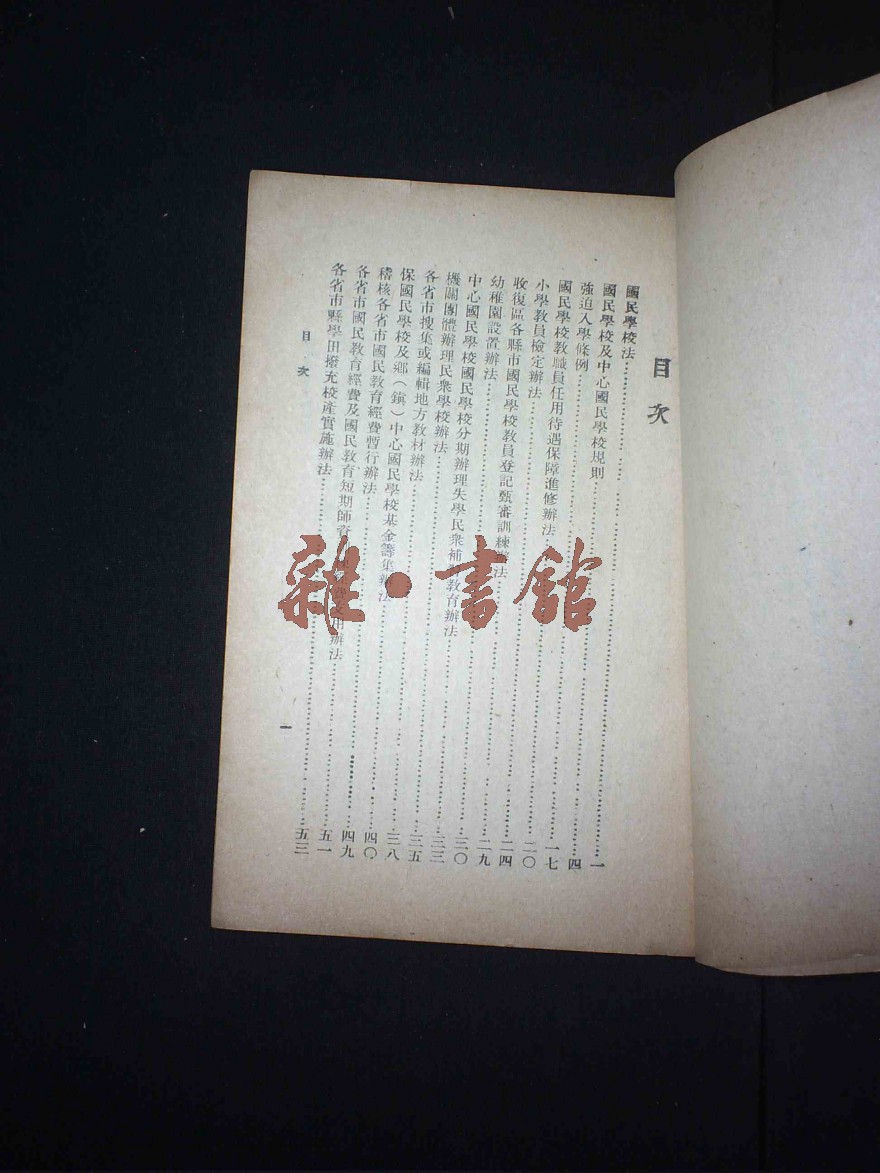 目次
國民學校法……一
國民學校及中心國民學校規則……四
強迫入學條例……一七
國民學校教職員任用待遇保障進修辦法……二〇
小學教員檢定辦法……二四
收復區各縣市國民學校教員登記甄審訓練辦法……二九
幼稚園設置辦法……三〇
中心國民學校國民學校分期辦理失學民衆補習教育辦法……三三
機關團體辦理民衆學校辦法……三五
各省市搜集或編輯地方教材辦法……三八
保國民學校及鄉（鎮）中心國民學校基金籌集辦法……四〇
稽核各省市國民教育經費暫行辦法……四九
各省市國民教育經費及國民教育短期師資用辦法……五一
各省市縣學田撥充校產實施辦法……五三
目次
一
雜·書館